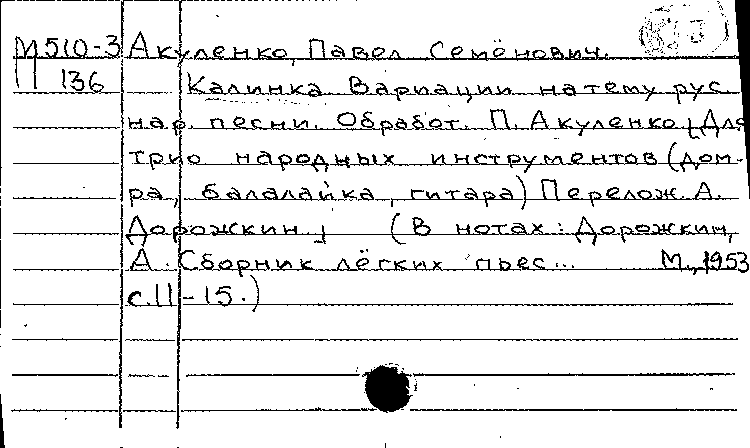 М510-3 Акуленко, Павел Семёнович.
П 136 Калинка. Вариации на тему рус.
нар. песни. Обработ. П. Акуленко [Для
трио народных инструментов (дом-
ра, балалайка, гитара) Перелож. А.
Дорожкин.] (В нотах: Дорожкин,
А. Сборник лёгких пьес... М., 1953
с. 11-15.)